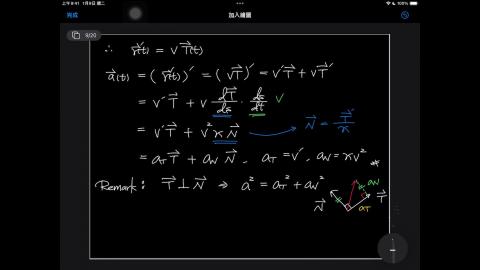 上午9:41 1月9日 週二
95%
完成
加入繪圖
9/20
∴ r⃗'(t) = v T⃗(t)
a⃗(t) = (r⃗'(t))' = (vT⃗)' = v'T⃗ + vT⃗'
= v'T⃗ + v dT⃗/ds · ds/dt v
= v'T⃗ + v²κN⃗ → N⃗ = T⃗'/κ
= a_T T⃗ + a_N N⃗, a_T = v', a_N = κv² *
Remark: T⃗ ⊥ N⃗ ⇒ a² = a_T² + a_N²
a_N
N⃗ a_T T⃗